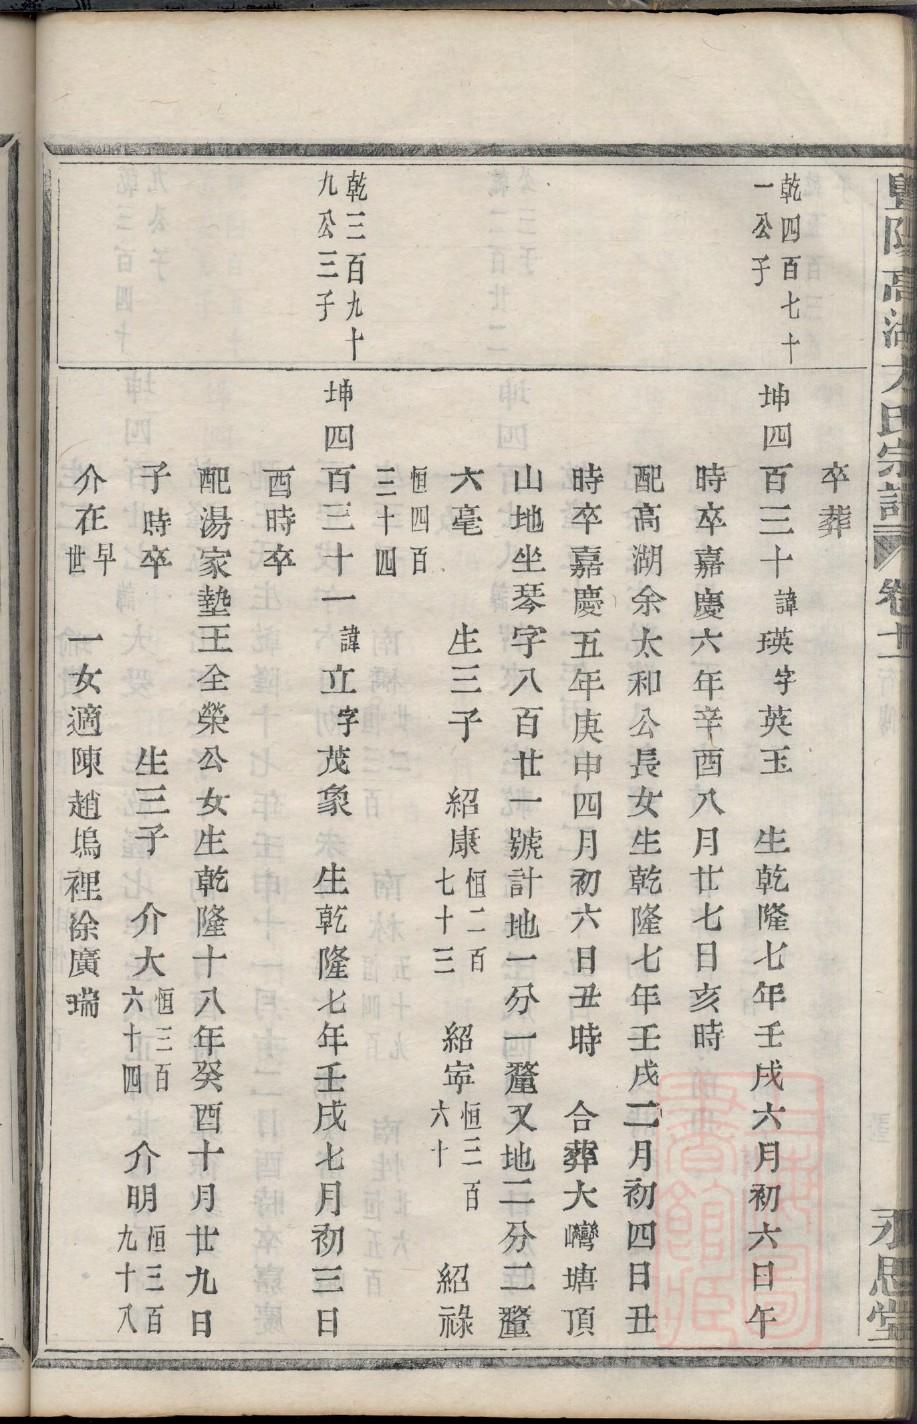 暨陽高湖方氏宗譜 卷十二 永思堂
乾四百七十
一公子
乾三百九十
九公三子
卒葬
坤四百三十諱瑛字英玉 生乾隆七年壬戌六月初六日午
時卒嘉慶六年辛酉八月廿七日亥時
配高湖余太和公長女生乾隆七年壬戌二月初四日丑
時卒嘉慶五年庚申四月初六日丑時 合葬大巒塘頂
山地坐琴字八百廿一號計地一分一釐又地二分二釐
六毫 生三子 紹康恒二百七十三 紹寧恒三百六十 紹祿
恒四百三十四
坤四百三十一諱立字茂象 生乾隆七年壬戌七月初三日
酉時卒
配湯家墊王全榮公女生乾隆十八年癸酉十月廿九日
子時卒 生三子 介大恒三百六十四 介明恒三百九十八
介在早世 一女適陳趙塢裡徐廣瑞